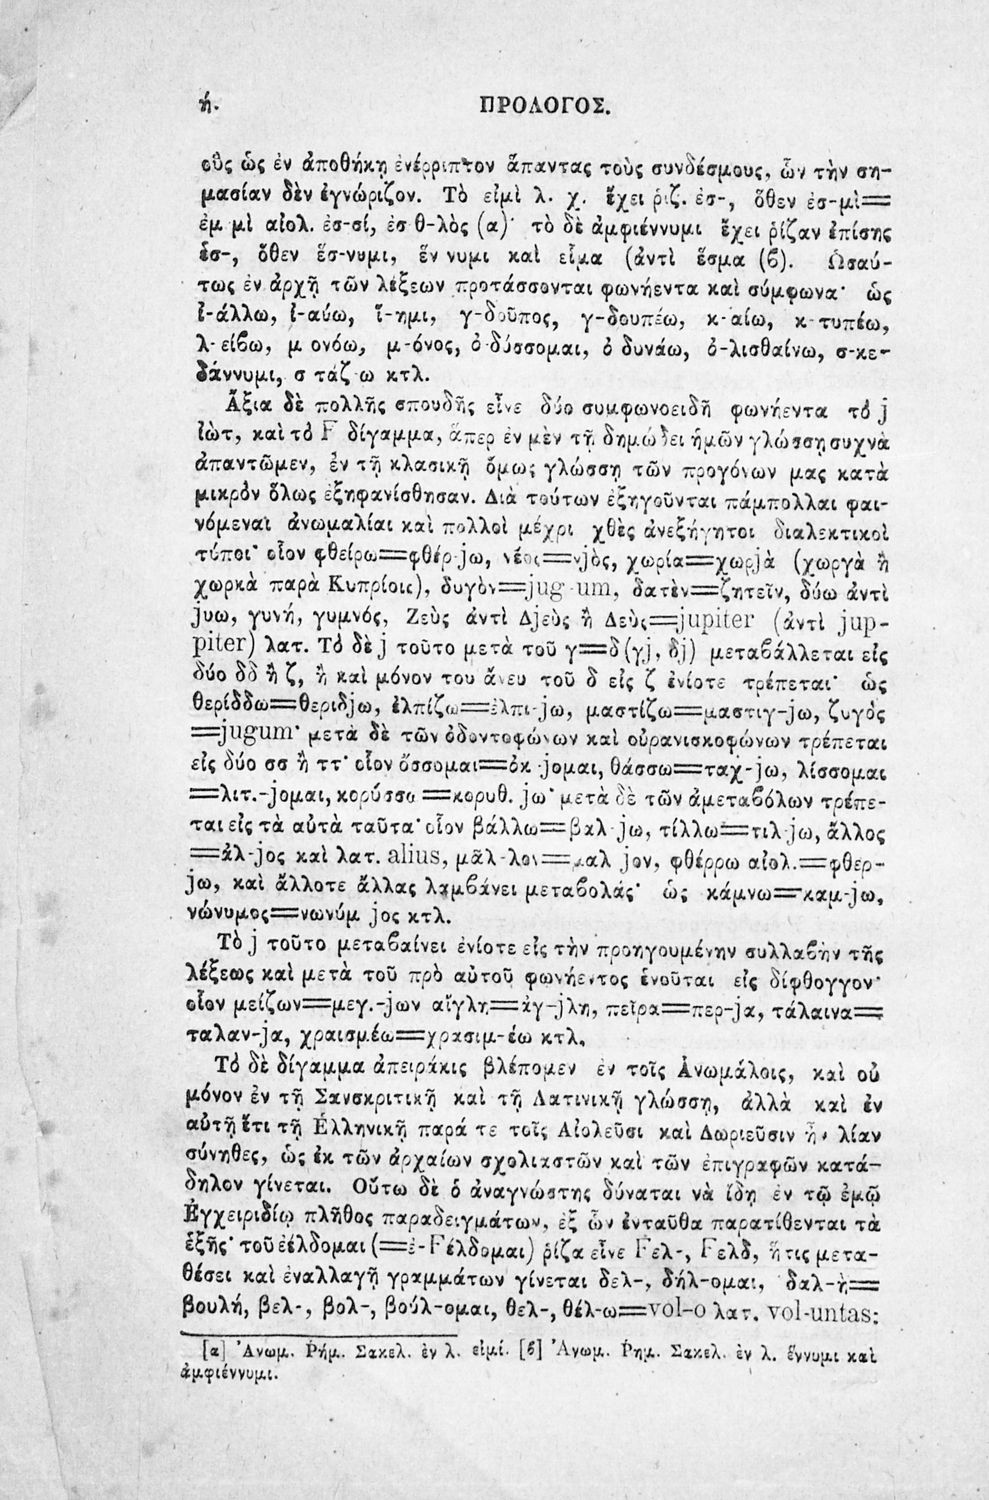 ή. ΠΡΟΛΟΓΟΣ.
οὓς ὡς ἐν ἀποθήκῃ ἐνέρριπτον ἅπαντας τοὺς συνδέσμους, ὧν τὴν ση-
μασίαν δὲν ἐγνώριζον. Τὸ εἰμὶ λ. χ. ἔχει ῥίζ. ἐσ-, ὅθεν ἐσ-μὶ=
ἐμ μὶ αἰολ. ἐσ-σί, ἐσ θ-λὸς (α)· τὸ δὲ ἀμφιέννυμι ἔχει ῥίζαν ἐπίσης
ἑσ-, ὅθεν ἕσ-νυμι, ἕν νυμι καὶ εἷμα (ἀντὶ ἕσμα (ϐ). Ὡσαύ-
τως ἐν ἀρχῇ τῶν λέξεων προτάσσονται φωνήεντα καὶ σύμφωνα· ὡς
ἰ-άλλω, ἰ-αύω, ἵ-ημι, γ-δοῦπος, γ-δουπέω, κ-αίω, κ-τυπέω,
λ-είϐω, μ ονόω, μ-όνος, ὀ-δύσσομαι, ὀ δυνάω, ὀ-λισθαίνω, σ-κε-
δάννυμι, σ τάζ ω κτλ.
Ἄξια δὲ πολλῆς σπουδῆς εἶνε δύο συμφωνοειδῆ φωνήεντα τὸ j
ἰὼτ, καὶ τὸ F δίγαμμα, ἅπερ ἐν μὲν τῇ δημώδει ἡμῶν γλώσσῃ συχνὰ
ἀπαντῶμεν, ἐν τῇ κλασικῇ ὅμως γλώσσῃ τῶν προγόνων μας κατὰ
μικρὸν ὅλως ἐξηφανίσθησαν. Διὰ τούτων ἐξηγοῦνται πάμπολλαι φαι-
νόμεναι ἀνωμαλίαι καὶ πολλοὶ μέχρι χθὲς ἀνεξήγητοι διαλεκτικοὶ
τύποι· οἷον φθείρω=φθέρ-jω, νέος=νjὸς, χωρία=χωρjὰ (χωργὰ ἢ
χωρκὰ παρὰ Κυπρίοις), δυγὸν=jug-um, δατὲν=ζητεῖν, δύω ἀντὶ
jυω, γυνή, γυμνός, Ζεὺς ἀντὶ Δjεὺς ἢ Δεὺς=jupiter (ἀντὶ jup-
piter) λατ. Τὸ δὲ j τοῦτο μετὰ τοῦ γ=δ (γj, δj) μεταϐάλλεται εἰς
δύο δδ ἢ ζ, ἢ καὶ μόνον του ἄνευ τοῦ δ εἰς ζ ἐνίοτε τρέπεται· ὡς
θερίδδω=θεριδjω, ἐλπίζω=ἐλπι-jω, μαστίζω=μαστιγ-jω, ζυγὸς
=jugum· μετὰ δὲ τῶν ὀδοντοφώνων καὶ οὐρανισκοφώνων τρέπεται
εἰς δύο σσ ἢ ττ· οἷον ὄσσομαι=ὀκ jομαι, θάσσω=ταχ-jω, λίσσομαι
=λιτ.-jομαι, κορύσσω=κορυθ. jω· μετὰ δὲ τῶν ἀμεταϐόλων τρέπε-
ται εἰς τὰ αὐτὰ ταῦτα· οἷον βάλλω=βαλ jω, τίλλω=τιλ-jω, ἄλλος
=ἀλ-jος καὶ λατ. alius, μᾶλ-λον=μαλ jον, φθέρρω αἰολ.=φθερ-
jω, καὶ ἄλλοτε ἄλλας λαμϐάνει μεταϐολάς· ὡς κάμνω=καμ-jω,
νώνυμος=νωνύμ jος κτλ.
Τὸ j τοῦτο μεταϐαίνει ἐνίοτε εἰς τὴν προηγουμένην συλλαϐὴν τῆς
λέξεως καὶ μετὰ τοῦ πρὸ αὐτοῦ φωνήεντος ἑνοῦται εἰς δίφθογγον·
οἷον μείζων=μεγ.-jων αἴγλη=ἀγ-jλη, πεῖρα=περ-jα, τάλαινα=
ταλαν-jα, χραισμέω=χρασιμ-έω κτλ.
Τὸ δὲ δίγαμμα ἀπειράκις βλέπομεν ἐν τοῖς Ἀνωμάλοις, καὶ οὐ
μόνον ἐν τῇ Σανσκριτικῇ καὶ τῇ Λατινικῇ γλώσσῃ, ἀλλὰ καὶ ἐν
αὐτῇ ἔτι τῇ Ἑλληνικῇ παρά τε τοῖς Αἰολεῦσι καὶ Δωριεῦσιν ἦν λίαν
σύνηθες, ὡς ἐκ τῶν ἀρχαίων σχολιαστῶν καὶ τῶν ἐπιγραφῶν κατά-
δηλον γίνεται. Οὕτω δὲ ὁ ἀναγνώστης δύναται νὰ ἴδῃ ἐν τῷ ἐμῷ
Ἐγχειριδίῳ πλῆθος παραδειγμάτων, ἐξ ὧν ἐνταῦθα παρατίθενται τὰ
ἑξῆς· τοῦ ἐέλδομαι (=ἐ-Fέλδομαι) ῥίζα εἶνε Fελ-, Fελδ, ἥτις μετα-
θέσει καὶ ἐναλλαγῇ γραμμάτων γίνεται δελ-, δήλ-ομαι, δαλ-ὴ=
βουλή, βελ-, βολ-, βούλ-ομαι, θελ-, θέλ-ω=vol-o λατ. vol-untas:
[α] Ἀνωμ. Ῥήμ. Σακελ. ἐν λ. εἰμί. [ϐ] Ἀνωμ. Ῥημ. Σακελ. ἐν λ. ἕννυμι καὶ
ἀμφιέννυμι.